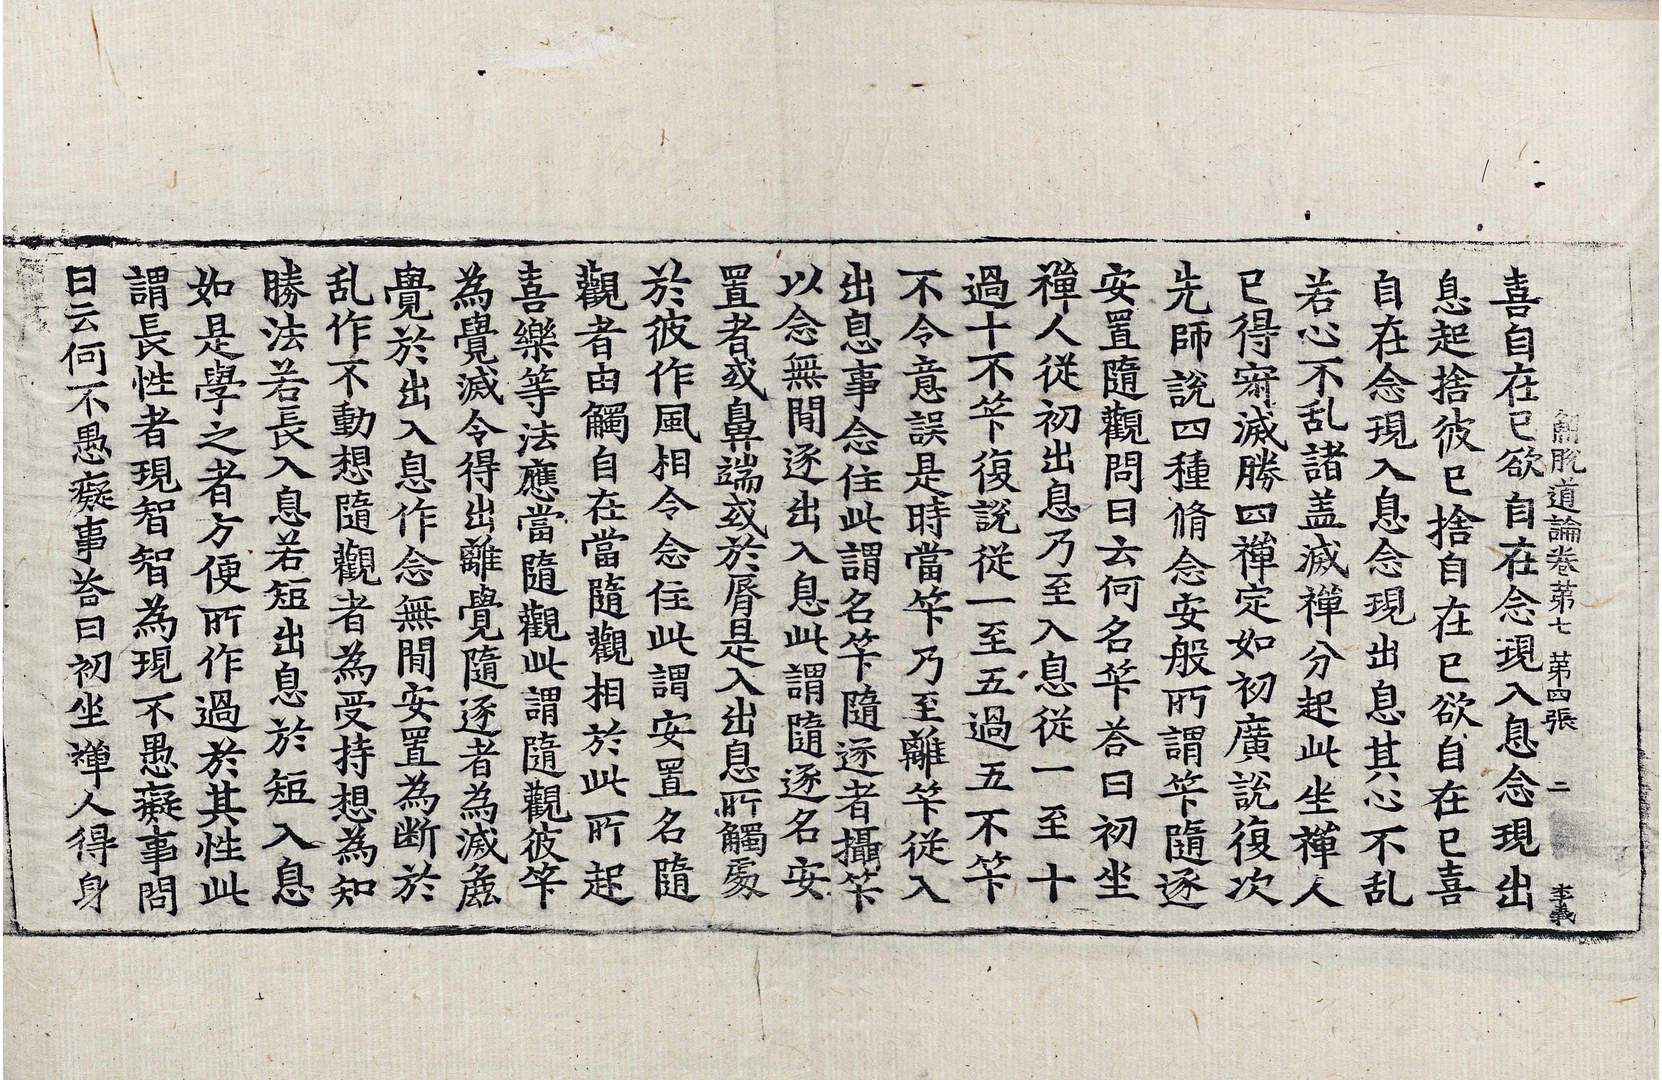 解脫道論卷第七 第四張 二 李義
喜自在已欲自在念現入息念現出
息起捨彼已捨自在已欲自在已喜
自在念現入息念現出息其心不乱
若心不乱諸盖滅禪分起此坐禪人
已得寂滅勝四禪定如初廣說復次
先師說四種脩念安般所謂笇隨逐
安置隨觀問曰云何名笇荅曰初坐
禪人從初出息乃至入息從一至十
過十不笇復說從一至五過五不笇
不令意誤是時當笇乃至離笇從入
出息事念住此謂名笇隨逐者攝笇
以念無間逐出入息此謂隨逐名安
置者或鼻端或於脣是入出息所觸處
於彼作風相令念住此謂安置名隨
觀者由觸自在當隨觀相於此所起
喜樂等法應當隨觀此謂隨觀彼笇
為覺滅令得出離覺隨逐者為滅麁
覺於出入息作念無間安置為断於
乱作不動想隨觀者為受持想為知
勝法若長入息若短出息於短入息
如是學之者方便所作過於其性此
謂長性者現智智為現不愚癡事問
曰云何不愚癡事荅曰初坐禪人得身